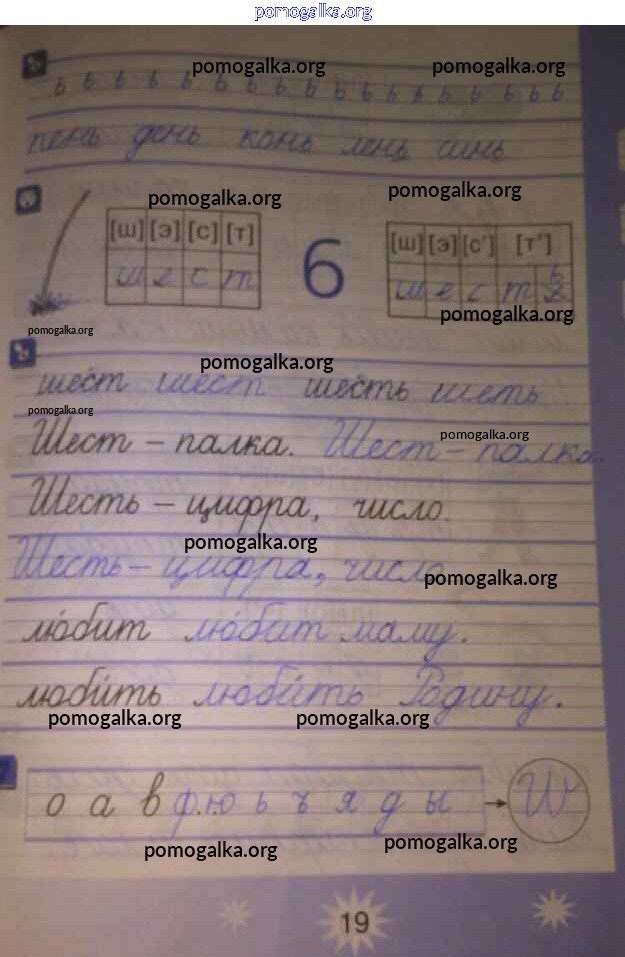 pomogalka.org
pomogalka.org pomogalka.org
ь ь ь ь ь ь ь ь ь ь ь ь ь ь ь ь ь ь
пень день конь лень синь
pomogalka.org pomogalka.org
[ш] [э] [с] [т] 6 [ш] [э] [с'] [т']
ш е с т ш е с т ь
pomogalka.org pomogalka.org
pomogalka.org
шест шест шесть шесть
pomogalka.org pomogalka.org
Шест – палка. Шест – палка.
Шесть – цифра, число.
pomogalka.org
Шесть – цифра, число
pomogalka.org
лю́бит лю́бит маму.
люби́ть люби́ть Родину.
pomogalka.org pomogalka.org
о а в ф ю ь ъ я д ы
pomogalka.org pomogalka.org
19